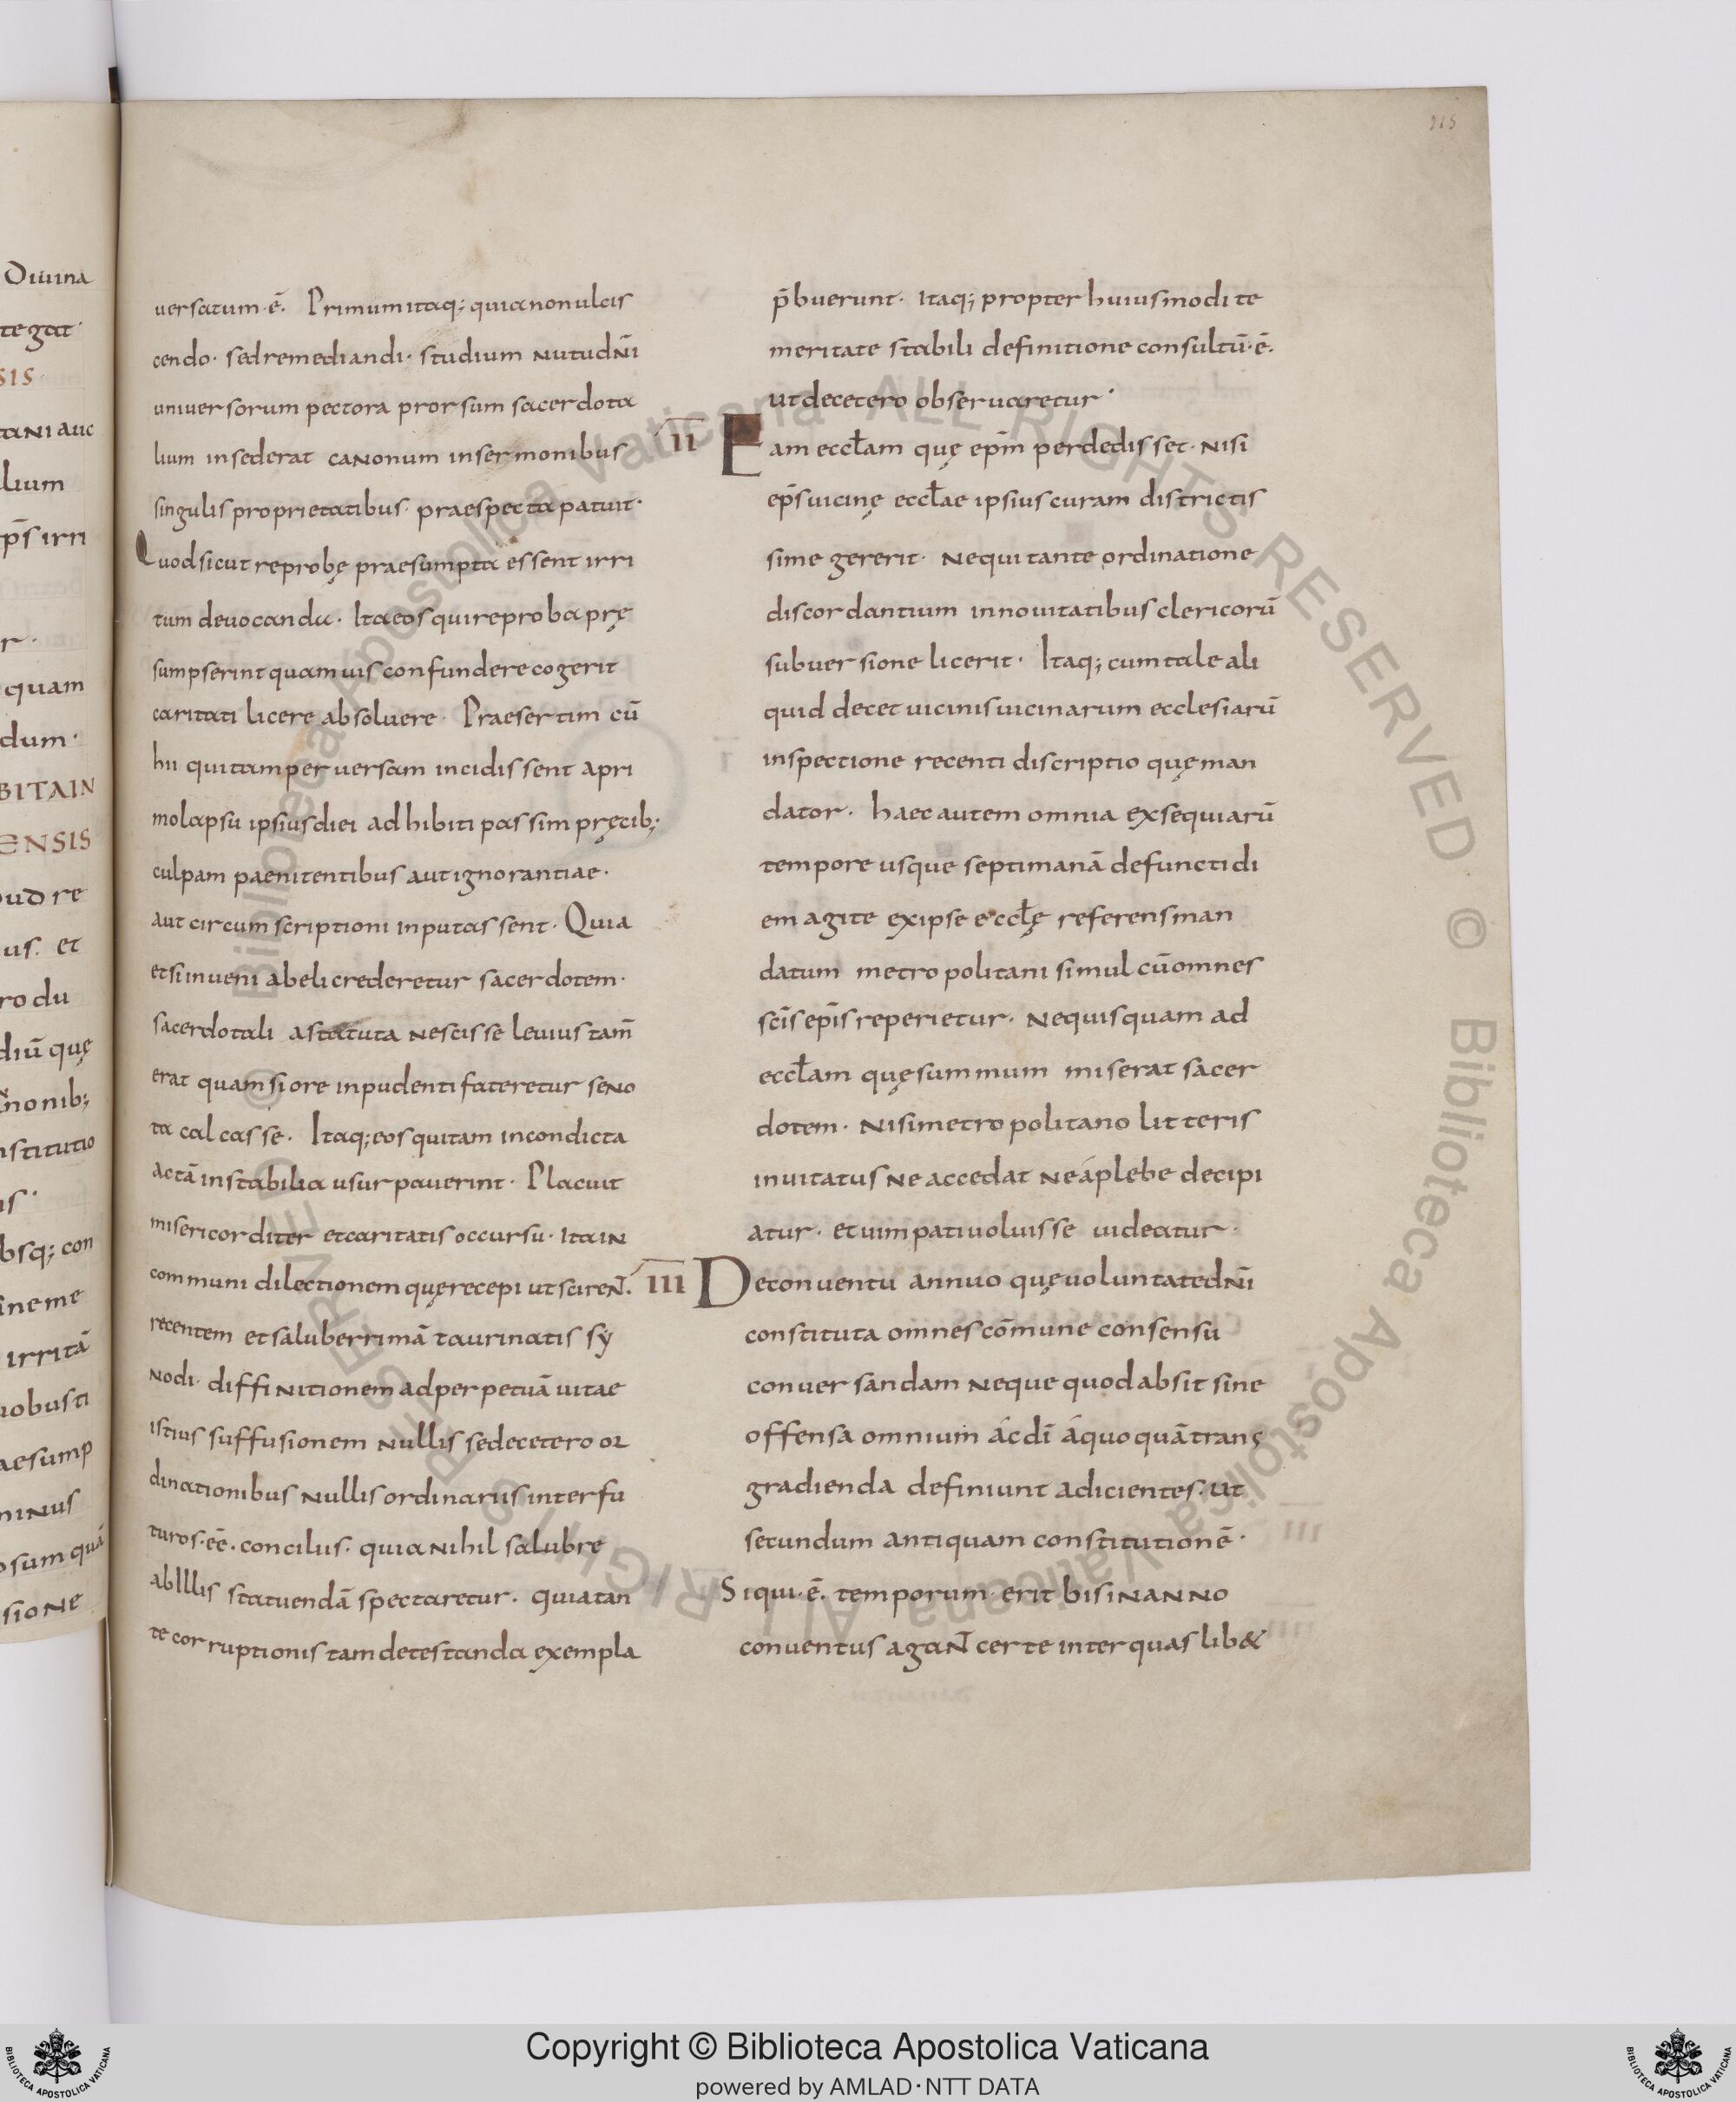 Diuina
tegat·
SIS·
taNi auc
lium
ps̄ irri
r·
quam
dum·
BITAIN
ENSIS
pud re
us. et
ro du
diū quę
nonib;
nstitutio
is·
bsq; con
ineme
irritā
uobusti
aesump
minus
osum quā
sione
215
uersatum·ē. Primumitaq; quianonulcis
cendo· sedremediandi· studium Nutudn̄i
uniuersorum pectora prorsum sacerdota
lium insederat caNonum insermonibus
singulis proprietatibus· praespecta patuit·
Quodsicut reprobę praesumpta essent irri
tum deuocanda· Itaeos quireproba prę
sumpserint quamuis confundere cogerit
caritati licere absoluere· Praesertim cū
hii quitamperuersam incidissent apri
molapsu ipsiusdiei adhibiti passim pręcib;
culpam paenitentibus autignorantiae·
aut circumscriptioni inputassent· Quia
etsiinueni abelicrederetur sacerdotem·
sacerdotali astatuta Nescisse leuiustam̄
erat quamsiore inpudentifateretur seNo
ta calcasse· Itaq; eos quitam incondicta
actā instabilia usurpauerint· Placuit
misericorditer etcaritatis occursu· ItaiN
communi dilectionem quęrecepi ut scireN̄·
recentem etsaluberrimā taurinatis sy
Nodi· diffiNitionem adperpetuā uitae
istius suffusionem Nullis sedecetero or
dinationibus Nullis ordinariis interfu
turos·eē· conciliis· quia Nihil salubre
ablllis statuendā spectaretur. quiatan
te corruptionis tam detestanda exempla
p̄buerunt· Itaq; propter huiusmodi te
meritate stabili definitione consultū·ē·
utdecetero obseruaretur·
II Eam eccƚam quę epm̄ perdedisset· Nisi
ep̄suicinę eccƚae ipsius curam districtis
sime gererit· Nequi tante ordinatione
discordantium innouitatibus clericorū
subuersione licerit· Itaq; cumtale ali
quid decet uicinisuicinarum ecclesiarū
inspectione recenti discriptio quęman
dator· haec autem omnia exsequiarū
tempore usque septimanā defuncti di
em agite exipse eccƚę referensman
datum metropolitani simul cūomnes
sc̄is ep̄is reperietur· Nequisquam ad
eccƚam quęsummum miserat sacer
dotem· Nisimetropolitano litteris
inuitatus Ne accedat Neáplebe decipi
atur· etuimpatiuoluisse uideatur·
III Deconuentu annuo quęuoluntatedn̄i
constituta omnes cōmune consensu
conuersandam Neque quodabsit sine
offensa omnium ácdī áquoquātrans
gradienda definiunt adicientes· ut
secundum antiquam constitutionē·
Siqui·ē· temporum· erit bisiNaNNo
conuentus agaN̄ certe interquas lib&
Copyright © Biblioteca Apostolica Vaticana
powered by AMLAD·NTT DATA